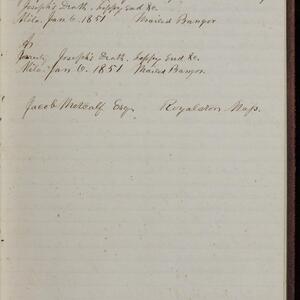 Joseph's Death, happy End &c.
Milo. Jan 6. 1851 Mailed Bangor
Joseph's Death, happy End &c.
Milo. Jan. 6. 1851 Mailed Bangor.
Jacob Metcalf Esq. Royalston Mass.